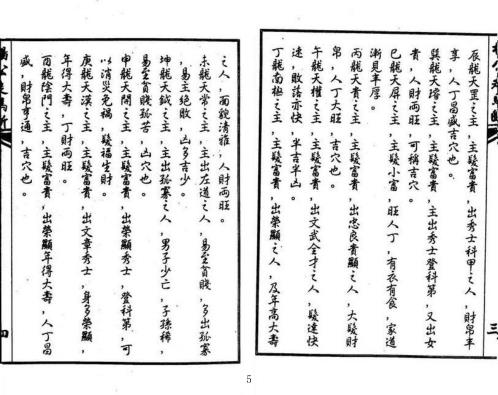 辰龍天罡之主，主發富貴，出秀士科甲之人，財帛丰
享，人丁昌盛吉穴也。
巽龍天璿之主，主發富貴，主出秀士登科第，又出女
貴，人財兩旺，可稱吉穴。
巳龍天屏之主，主發小富，旺人丁，有衣有食，家道
漸見丰厚。
丙龍天貴之主，主發富貴，出忠良貴顯之人，大發財
帛，人丁大旺，吉穴也。
午龍天權之主，主發富貴，出文武全才之人，發達快
速，敗落亦快，半吉半凶。
丁龍南極之主，主發富貴，出榮顯之人，及年高大壽
之人，面貌清雅，人財兩旺。
未龍天常之主，主出左道之人，易至貧賤，多出孤寡
，易主絕敗，凶多吉少。
坤龍天鉞之主，主出孤寡之人，男子少亡，子孫稀，
易至貧賤孤苦，凶穴也。
申龍天關之主，主發富貴，出榮顯秀士，登科第，可
以消災免禍，發福生財。
庚龍天漢之主，主發富貴，出文章秀士，身多榮顯，
年得大壽，丁財兩旺。
酉龍陰門之主，主發富貴，出榮顯年得大壽，人丁昌
盛，財帛亨通，吉穴也。
三
四
5